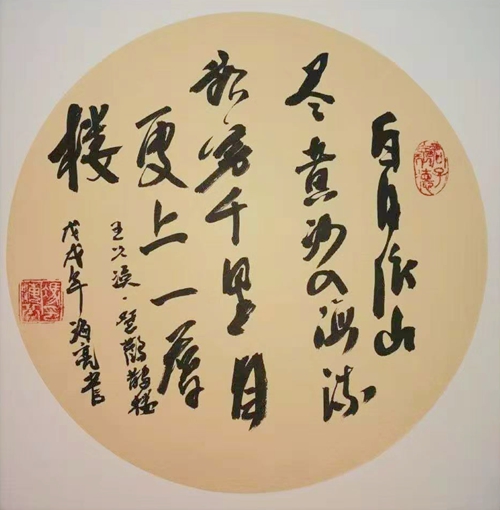 白日依山
尽黄河入海流
欲穷千里目
更上一层
楼
王之涣·登鹳鹊楼
戊戌年海亮书